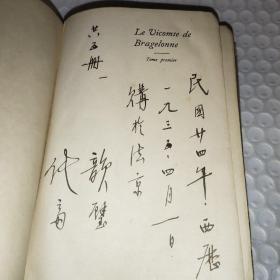 Le Vicomte de
Bragelonne
Tome premier
民國廿四年·西歷
一九三五、四月一日
購於法京
共五册一